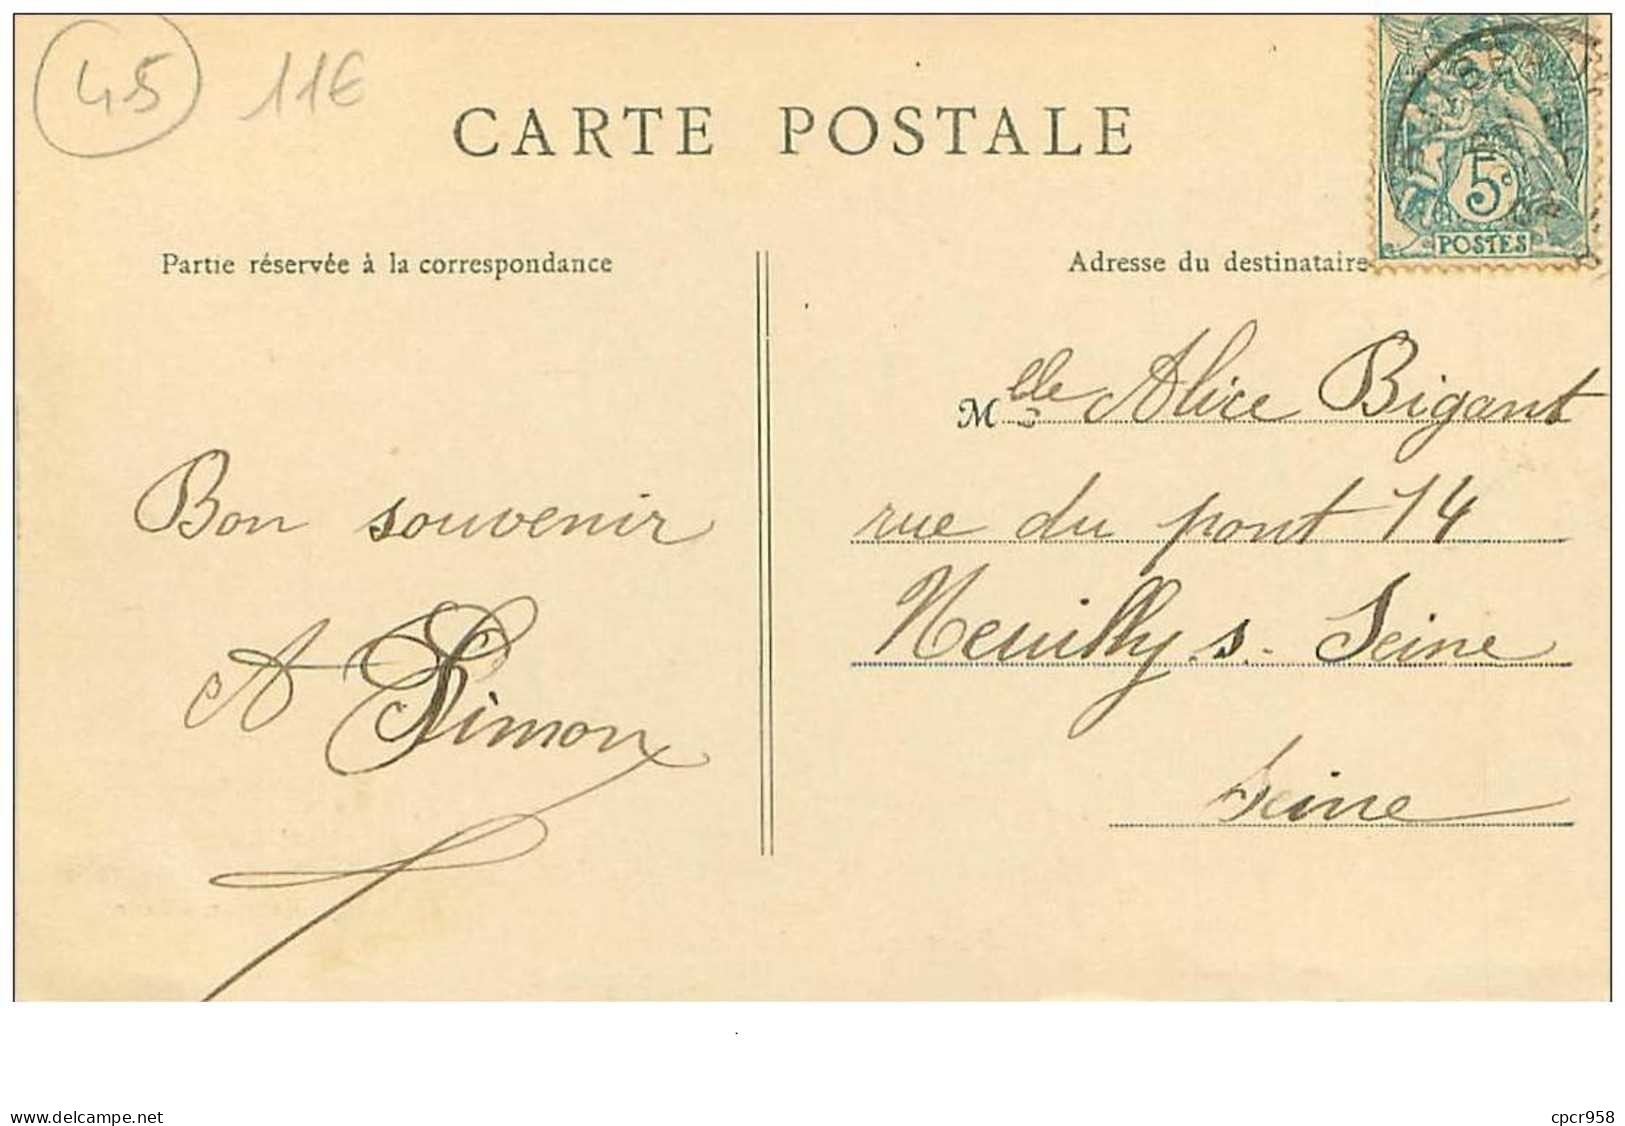 45 11€
CARTE POSTALE
5c
POSTES
Partie réservée à la correspondance
Adresse du destinataire
Bon souvenir
A Simon
Mlle Alice Bigant
rue du pont 14
Neuilly s. Seine
Seine
www.delcampe.net
cpcr958